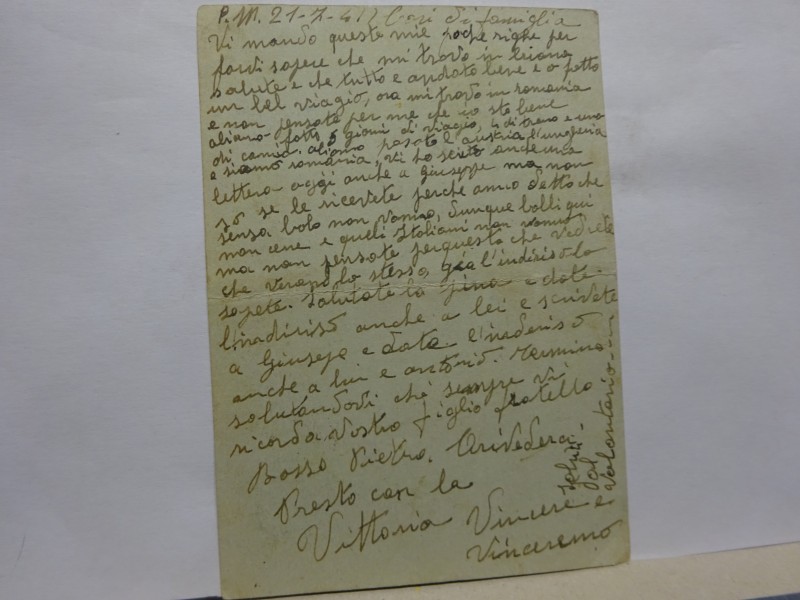 P.M. 21-7-41 Cari di famiglia
Vi mando queste mie poche righe per
farvi sapere che mi trovo in buona
salute e che tutto e andato bene e o fatto
un bel viagio, ora mi trovo in romania
e non pensate per me che io sto bene
abiamo fatto 5 giorni di viagio, 4 di treno e uno
di camio. abiamo pasato l'austria l'ungeria
e siamo romania, vi ho scrito anche una
lettera oggi anche a giuseppe ma non
so se le ricevete perche anno detto che
senza bolo non vanno, dunque bolli qui
non cene e queli Italiani non vanno
ma non pensate perquesto che vedrete
che verano lo stesso, gia l'indiriso lo
sapete. Salutate la Gina e date
l'indiriso anche a lei e scrivete
a Giusepe e date l'inderiso
anche a lui e antonio. Termino
salutandovi che sempre vi
ricorda vostro figlio fratello
Bosso Pietro. Arivederci
Presto con la
Vittoria Vincere e
Vinceremo
Saluti
dal
Volontario